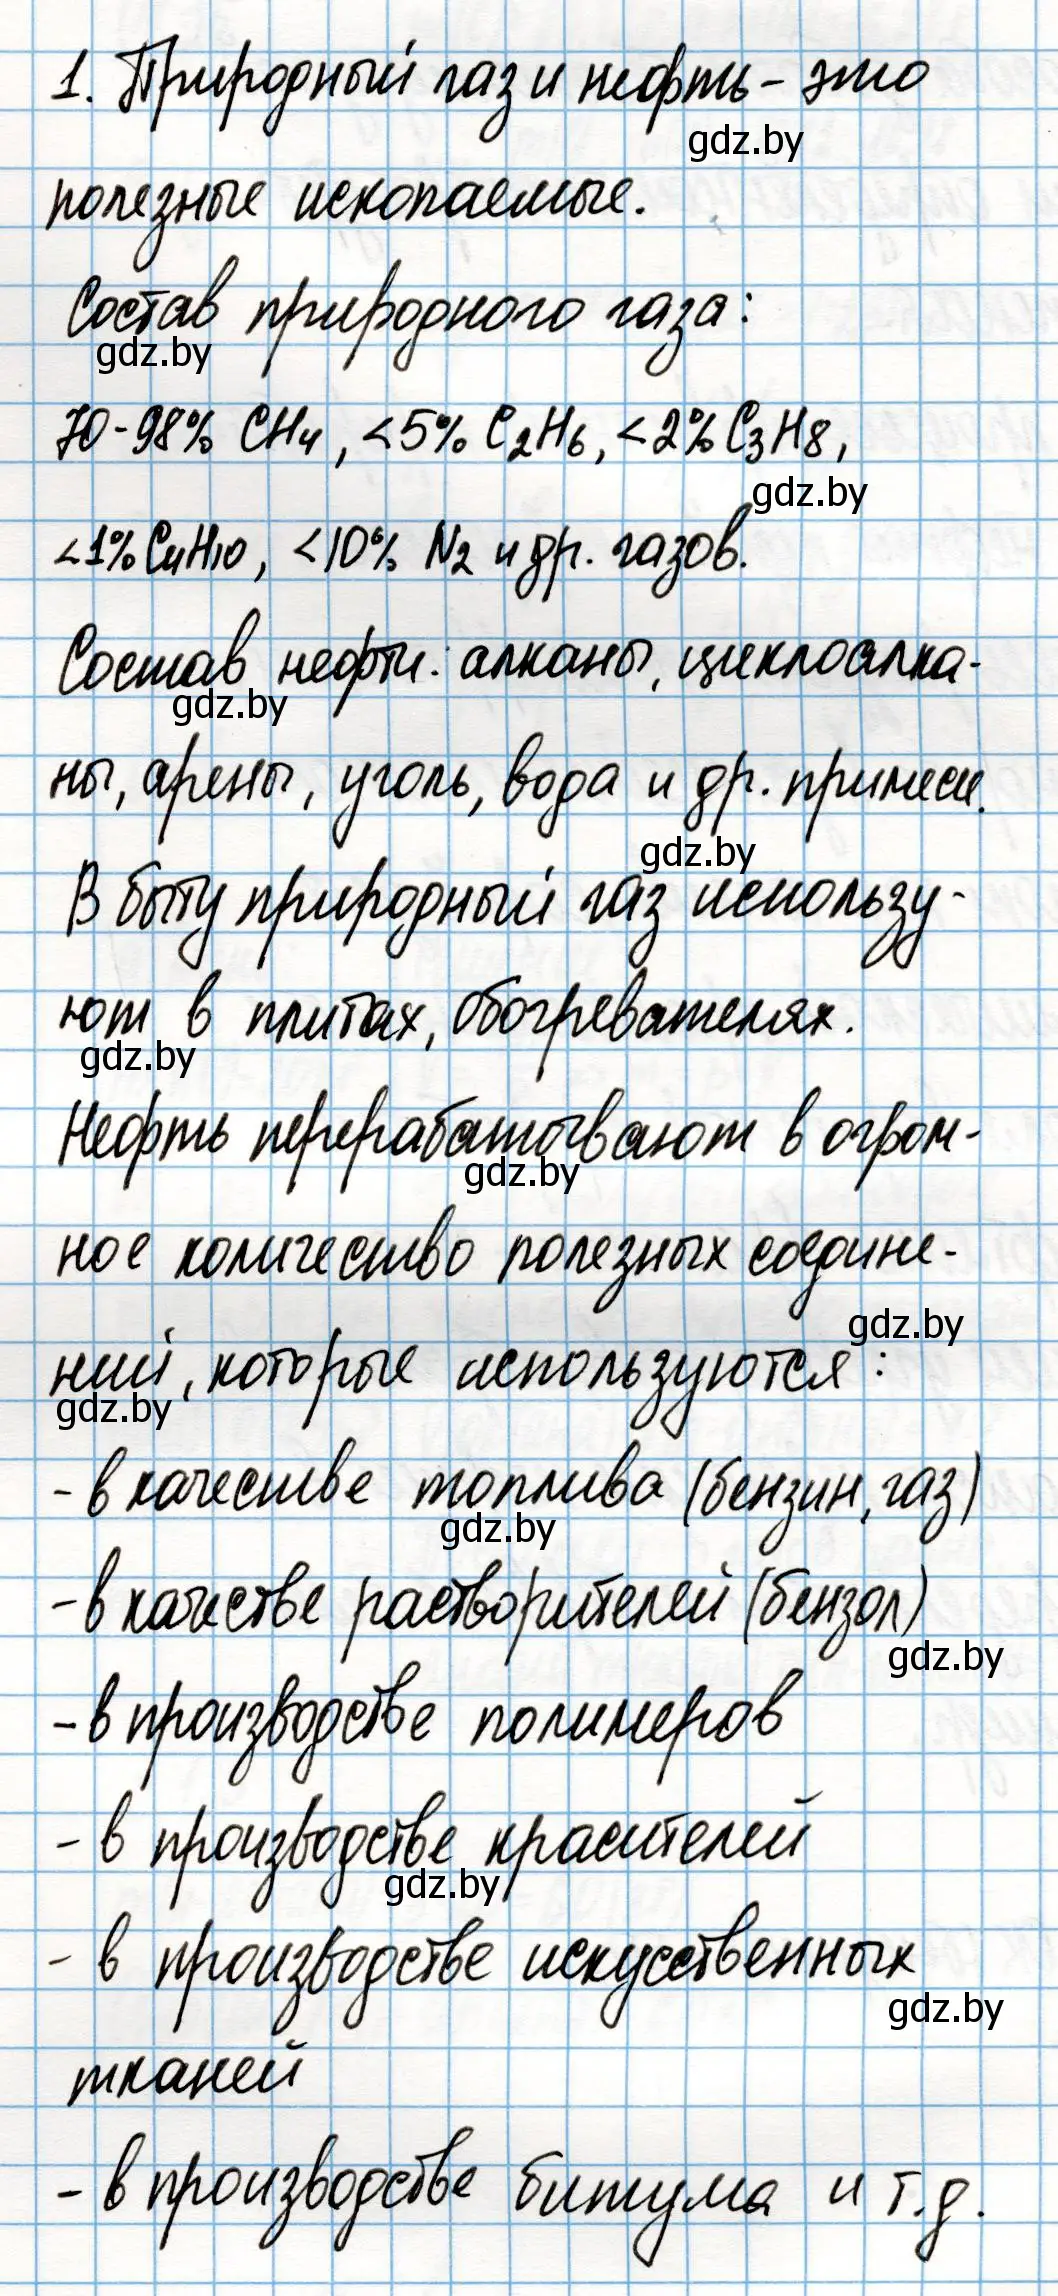 1. Природный газ и нефть - это
gdz.by
полезные ископаемые.
Состав природного газа:
gdz.by
70-98% CH4, <5% C2H6, <2% C3H8,
gdz.by
<1% C4H10, <10% N2 и др. газов.
Состав нефти: алканы, циклоалка-
gdz.by
ны, арены, уголь, вода и др. примеси.
gdz.by
В быту природный газ использу-
ют в плитах, обогревателях.
gdz.by
Нефть перерабатывают в огром-
gdz.by
ное количество полезных соедине-
gdz.by
ний, которые используются:
gdz.by
- в качестве топлива (бензин, газ)
gdz.by
- в качестве растворителей (бензол)
gdz.by
- в производстве полимеров
- в производстве красителей
gdz.by
- в производстве искусственных
gdz.by
тканей
- в производстве битума и т.д.